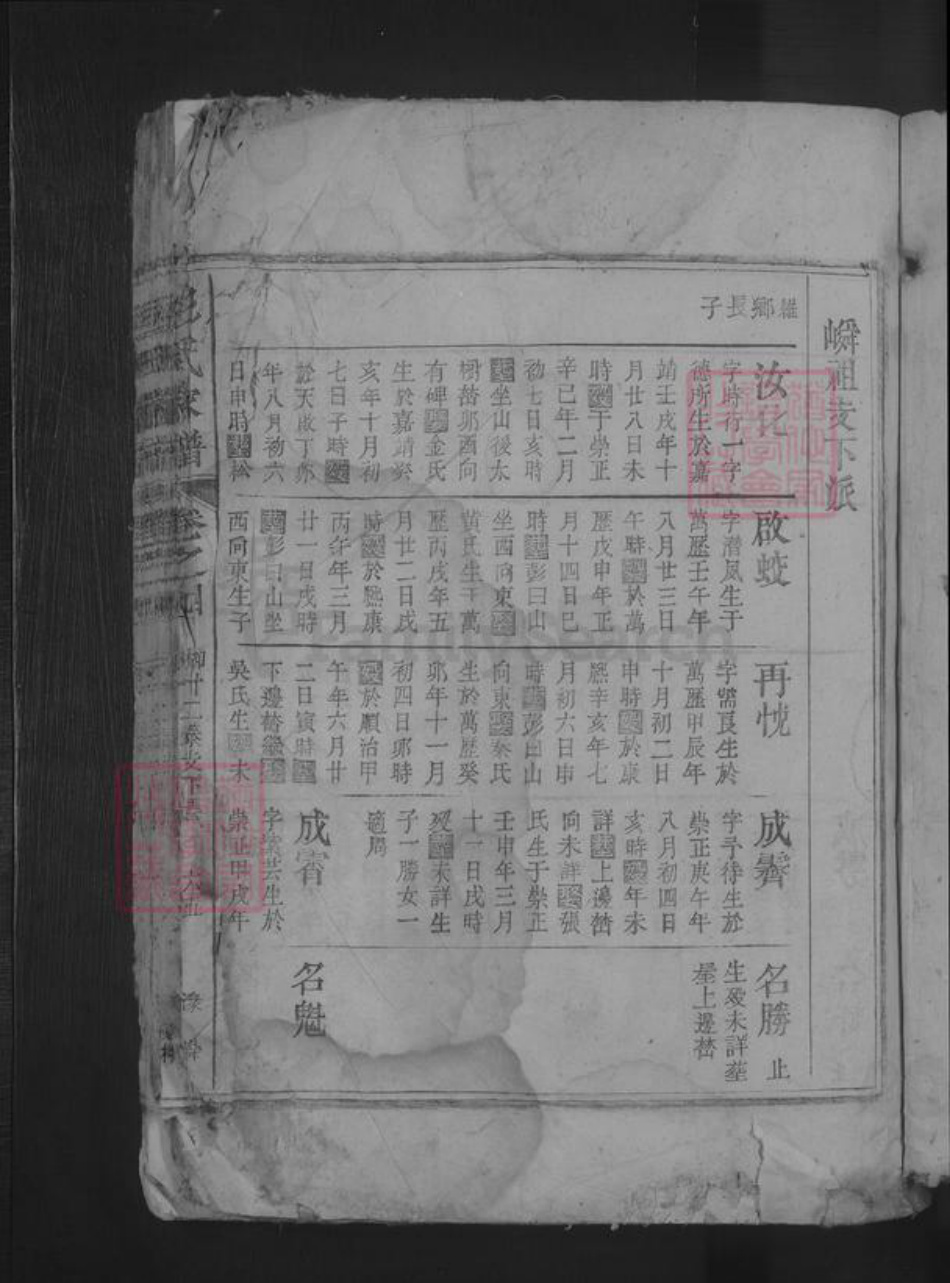 嶙祖支下派
雛鄉長子
汝化
字時行一字
德所生於嘉
靖壬戌年十
月廿八日未
時歿于崇正
辛巳年二月
初七日亥時
葬坐山後太
樹嵆卯酉向
有碑娶金氏
生於嘉靖癸
亥年十月初
七日子時歿
於天啟丁卯
年八月初六
日申時葬松
啟蛟
字潛鳳生于
萬歷壬午年
八月廿三日
午時歿於萬
歷戊申年正
月十四日巳
時葬彭曰山
坐西向東娶
黃氏生于萬
歷丙戌年五
月廿二日戌
時歿於熙康
丙午年三月
廿一日戌時
葬彭曰山坐
西向東生子
再忱
字需良生於
萬歷甲辰年
十月初二日
申時歿於康
熙辛亥年七
月初六日申
時葬彭曰山
向東娶秦氏
生於萬歷癸
卯年十一月
初四日卯時
歿於順治甲
午年六月廿
二日寅時葬
下邊嵆繼娶
吳氏生歿未
成霽
字予待生於
崇正庚午年
八月初四日
亥時歿年未
詳葬上邊嵆
向未詳娶張
氏生于崇正
壬申年三月
十一日戌時
歿葬未詳生
子一勝女一
適周
成霄
字共生於
崇正甲戌年
名勝 止
生歿未詳葬
屋上邊嵆
名魁
氏家譜 卷之四